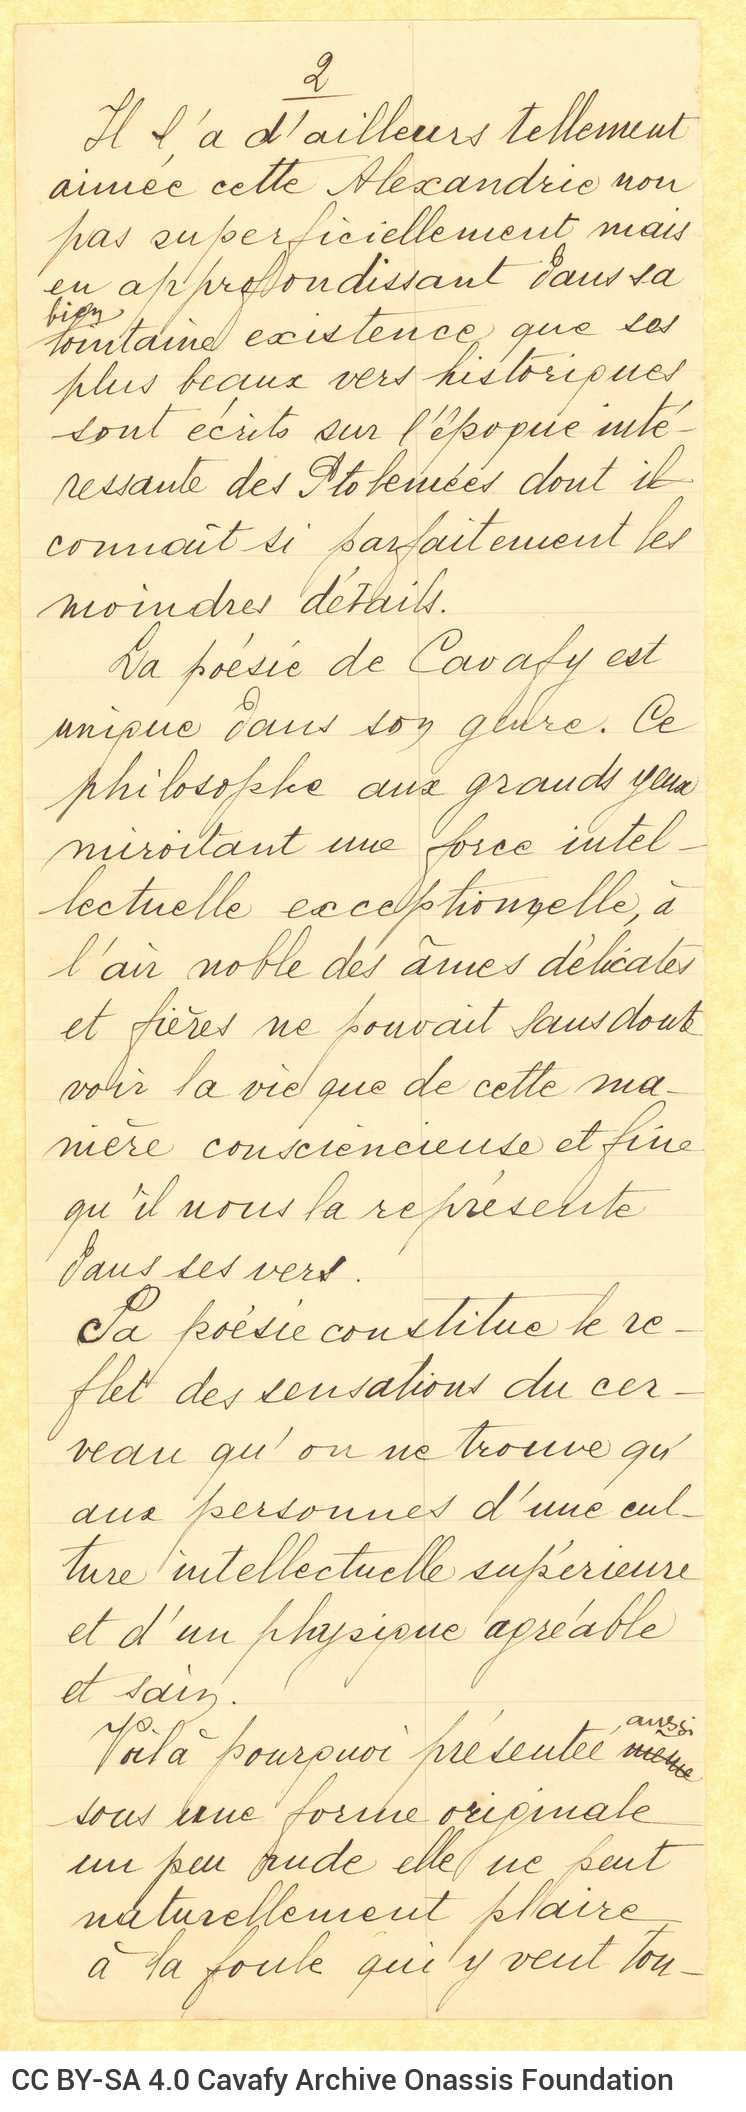 2
Il l'a d'ailleurs tellement
aimée cette Alexandrie non
pas superficiellement mais
en approfondissant dans sa
bien
lointaine existence que ses
plus beaux vers historiques
sont écrits sur l'époque inté-
ressante des Ptolemées dont il
connaît si parfaitement les
moindres détails.
La poésie de Cavafy est
unique dans son genre. Ce
philosophe aux grands yeux
miroitant une force intel-
lectuelle exceptionnelle, à
l'air noble des âmes délicates
et fières ne pouvait sans doute
voir la vie que de cette ma-
nière consciencieuse et fine
qu'il nous la représente
dans ses vers.
Sa poésie constitue le re-
flet des sensations du cer-
veau qu'on ne trouve qu'
aux personnes d'une cul-
ture intellectuelle supérieure
et d'un physique agréable
et sain.
aussi
Voilà pourquoi présenteé meme
sous une forme originale
un peu rude elle ne peut
naturellement plaire
à la foule qui y veut tou-
CC BY-SA 4.0 Cavafy Archive Onassis Foundation